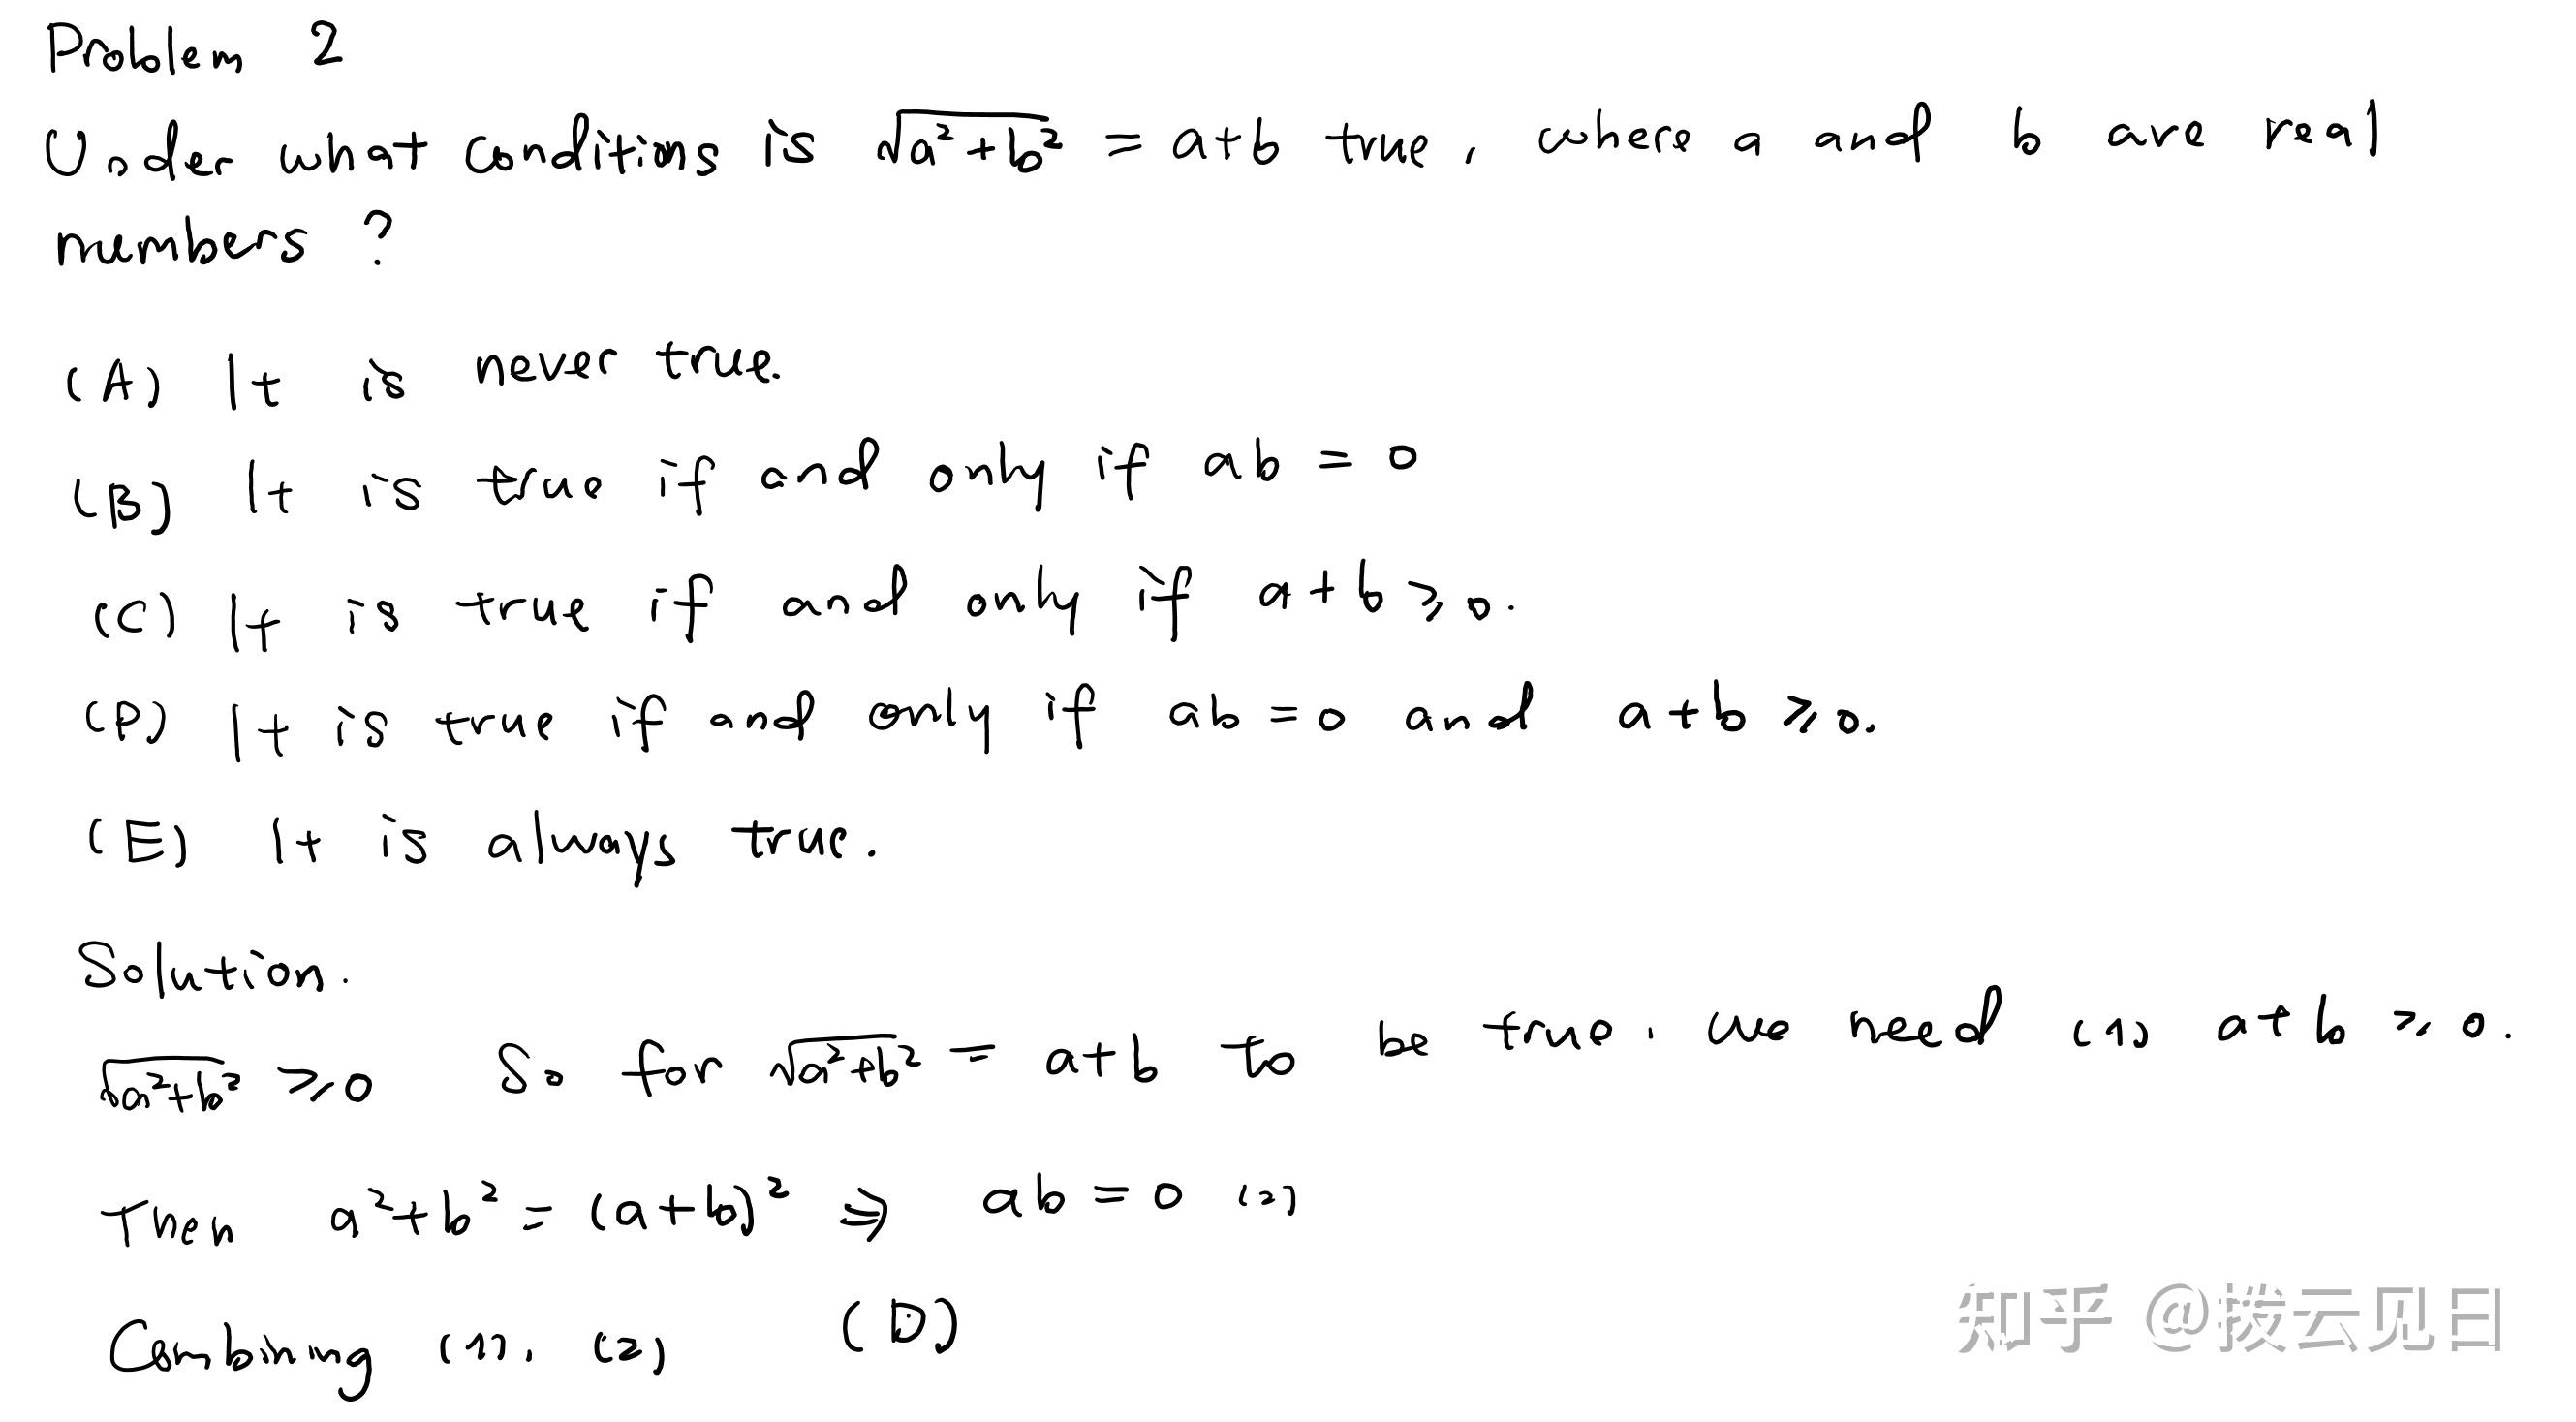 Problem 2
Under what conditions is √(a²+b²) = a+b true, where a and b are real
numbers ?
(A) It is never true.
(B) It is true if and only if ab = 0
(C) It is true if and only if a+b ⩾ 0.
(D) It is true if and only if ab = 0 and a+b ⩾ 0.
(E) It is always true.
Solution.
√(a²+b²) ⩾ 0 So for √(a²+b²) = a+b to be true, we need (1) a+b ⩾ 0.
Then a²+b² = (a+b)² ⇒ ab = 0 (2)
Combining (1), (2) (D)
知乎 @拨云见日